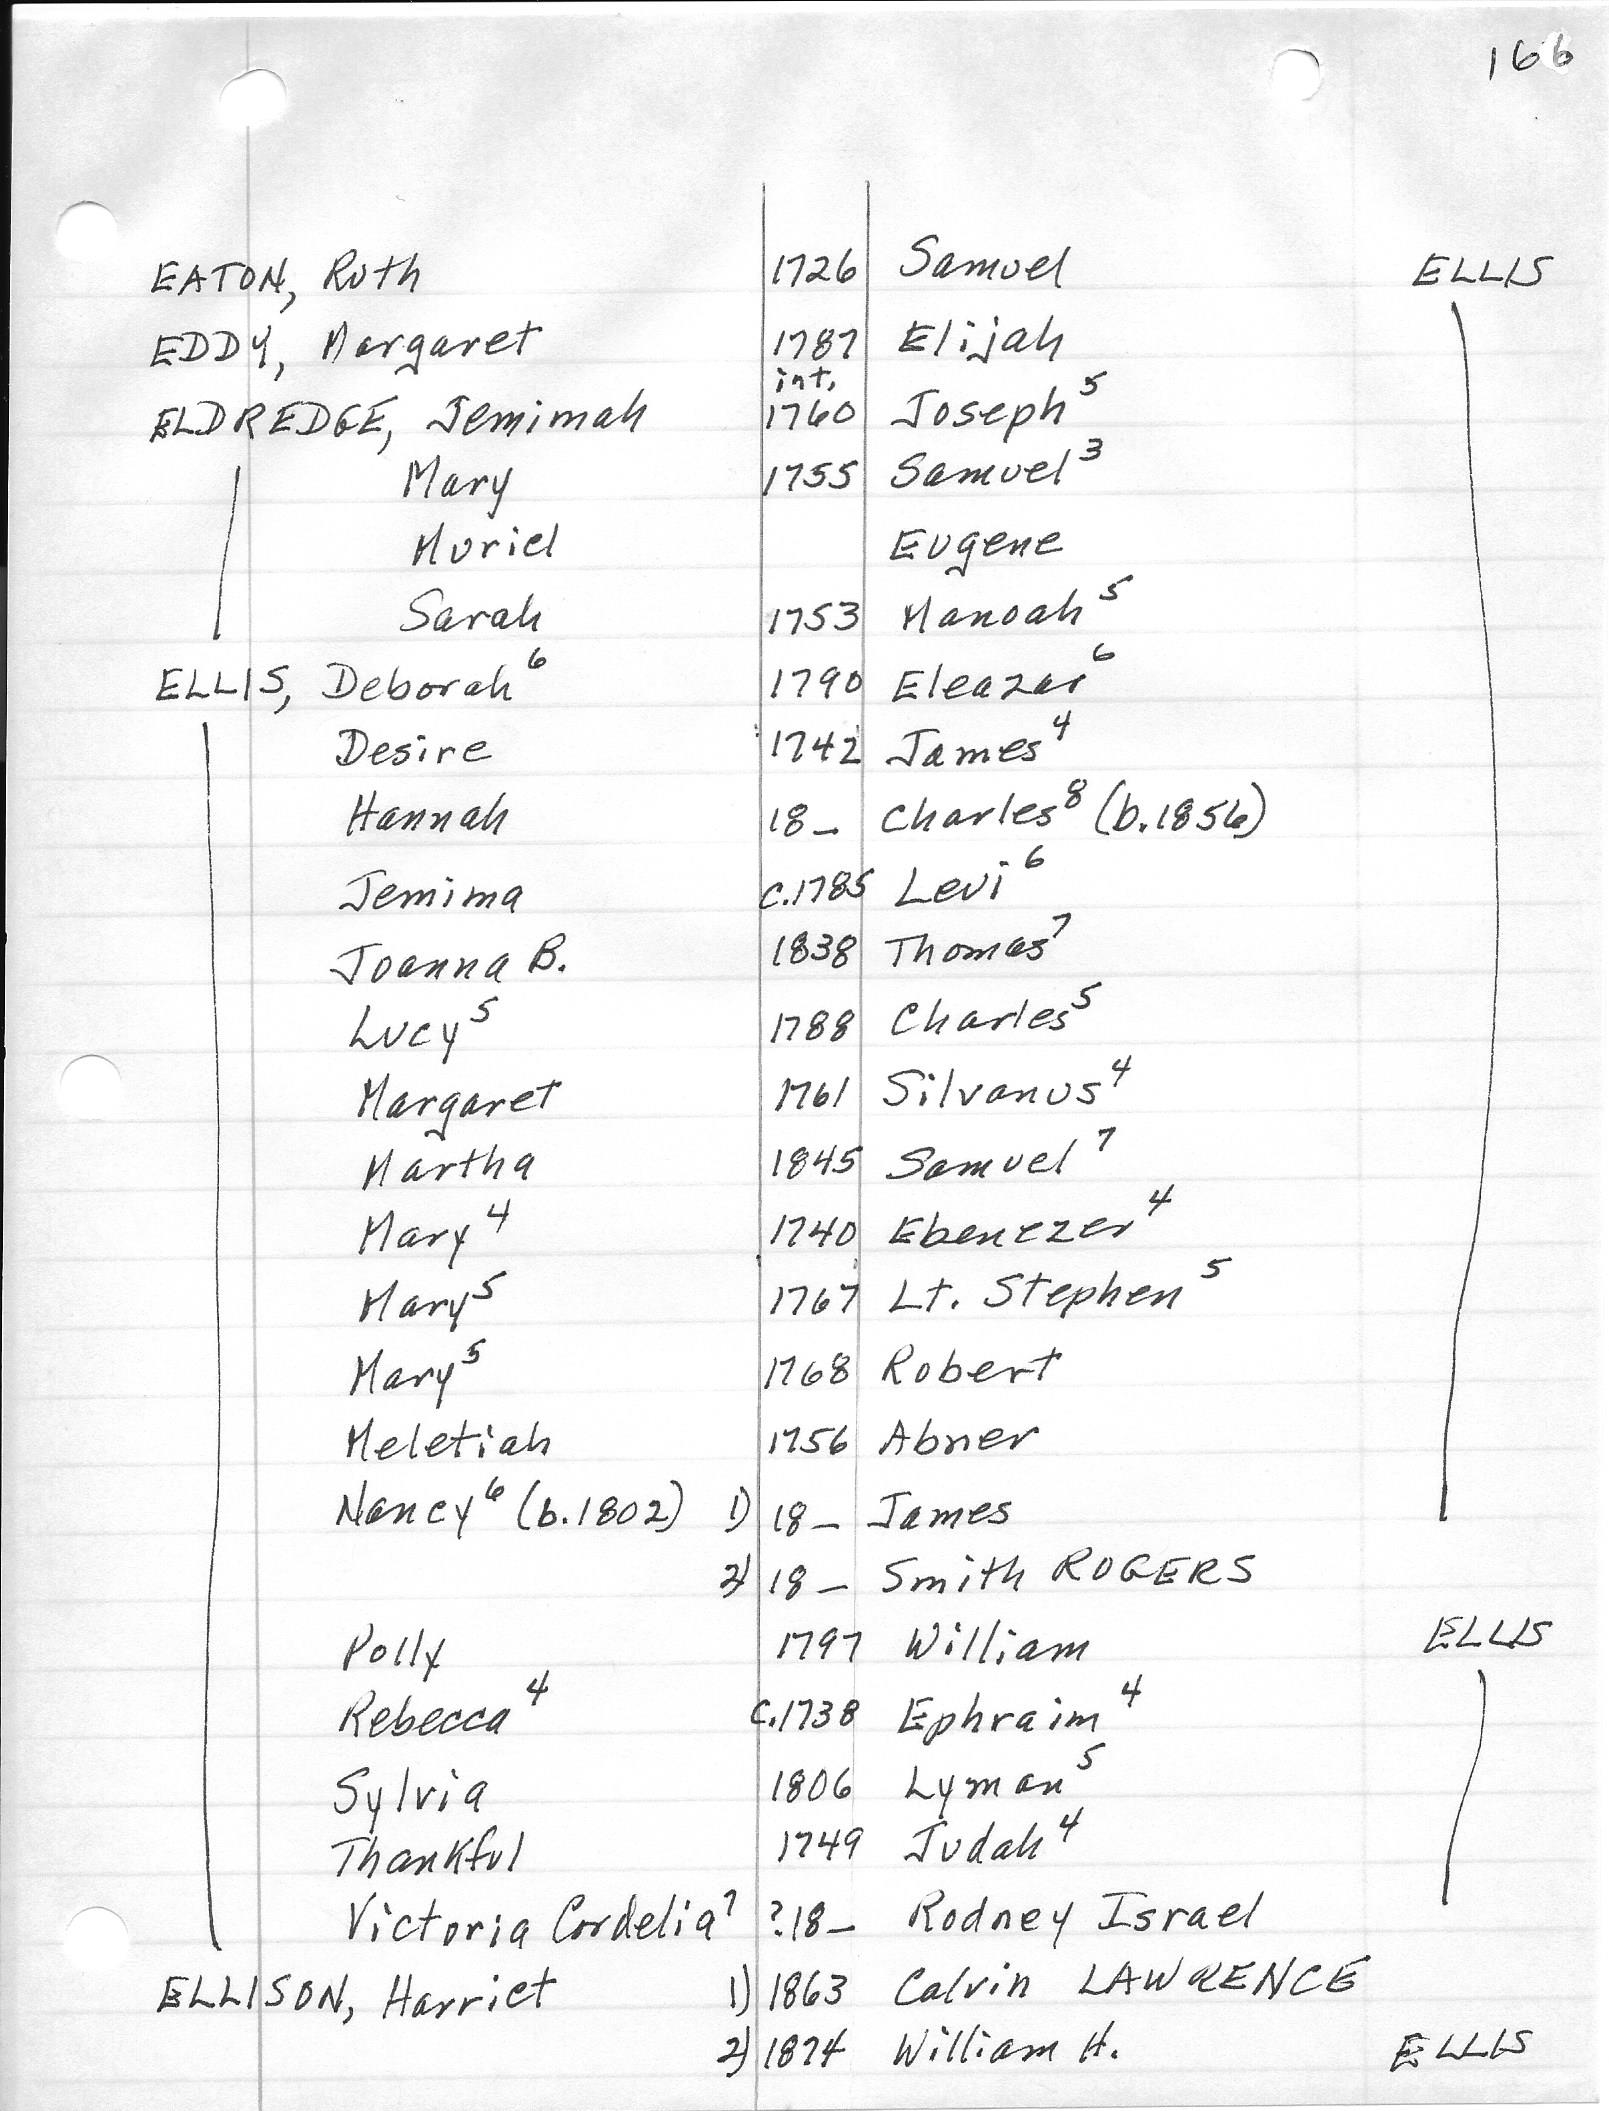 166
EATON, Ruth 1726 Samuel ELLIS
EDDY, Margaret 1787 Elijah
int.
ELDREDGE, Jemimah 1760 Joseph⁵
Mary 1755 Samuel³
Muriel Eugene
Sarah 1753 Manoah⁵
ELLIS, Deborah⁶ 1790 Eleazar⁶
Desire 1742 James⁴
Hannah 18_ Charles⁸ (b.1856)
Jemima c.1785 Levi⁶
Joanna B. 1838 Thomas⁷
Lucy⁵ 1788 Charles⁵
Margaret 1761 Silvanus⁴
Martha 1845 Samuel⁷
Mary⁴ 1740 Ebenezer⁴
Mary⁵ 1767 Lt. Stephen⁵
Mary⁵ 1768 Robert
Meletiah 1756 Abner
Nancy⁶ (b.1802) 1) 18_ James
2) 18_ Smith ROGERS
Polly 1797 William ELLIS
Rebecca⁴ c.1738 Ephraim⁴
Sylvia 1806 Lyman⁵
Thankful 1749 Judah⁴
Victoria Cordelia⁷ ?18_ Rodney Israel
ELLISON, Harriet 1) 1863 Calvin LAWRENCE
2) 1874 William H. ELLIS